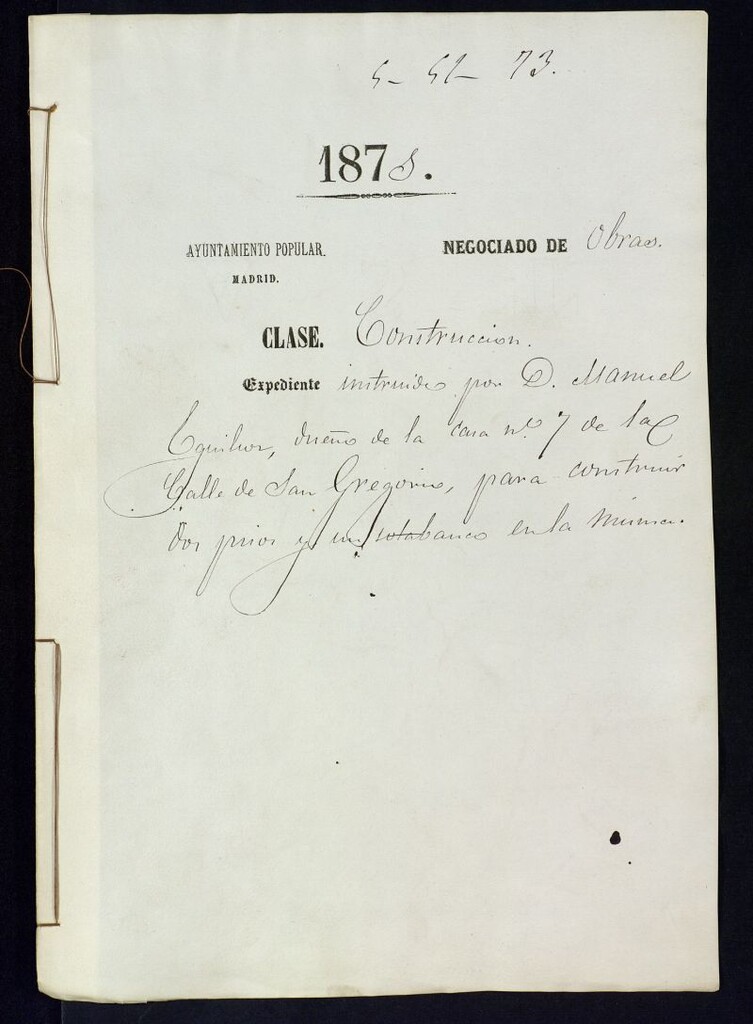 5- 51- 73.
1875.
AYUNTAMIENTO POPULAR.
MADRID.
NEGOCIADO DE Obras.
CLASE. Construccion.
Expediente instruido por D. Manuel
dueño de la casa nº 7 de la
Calle de San Gregorio, para construir
dos pisos y un sotabanco en la misma.